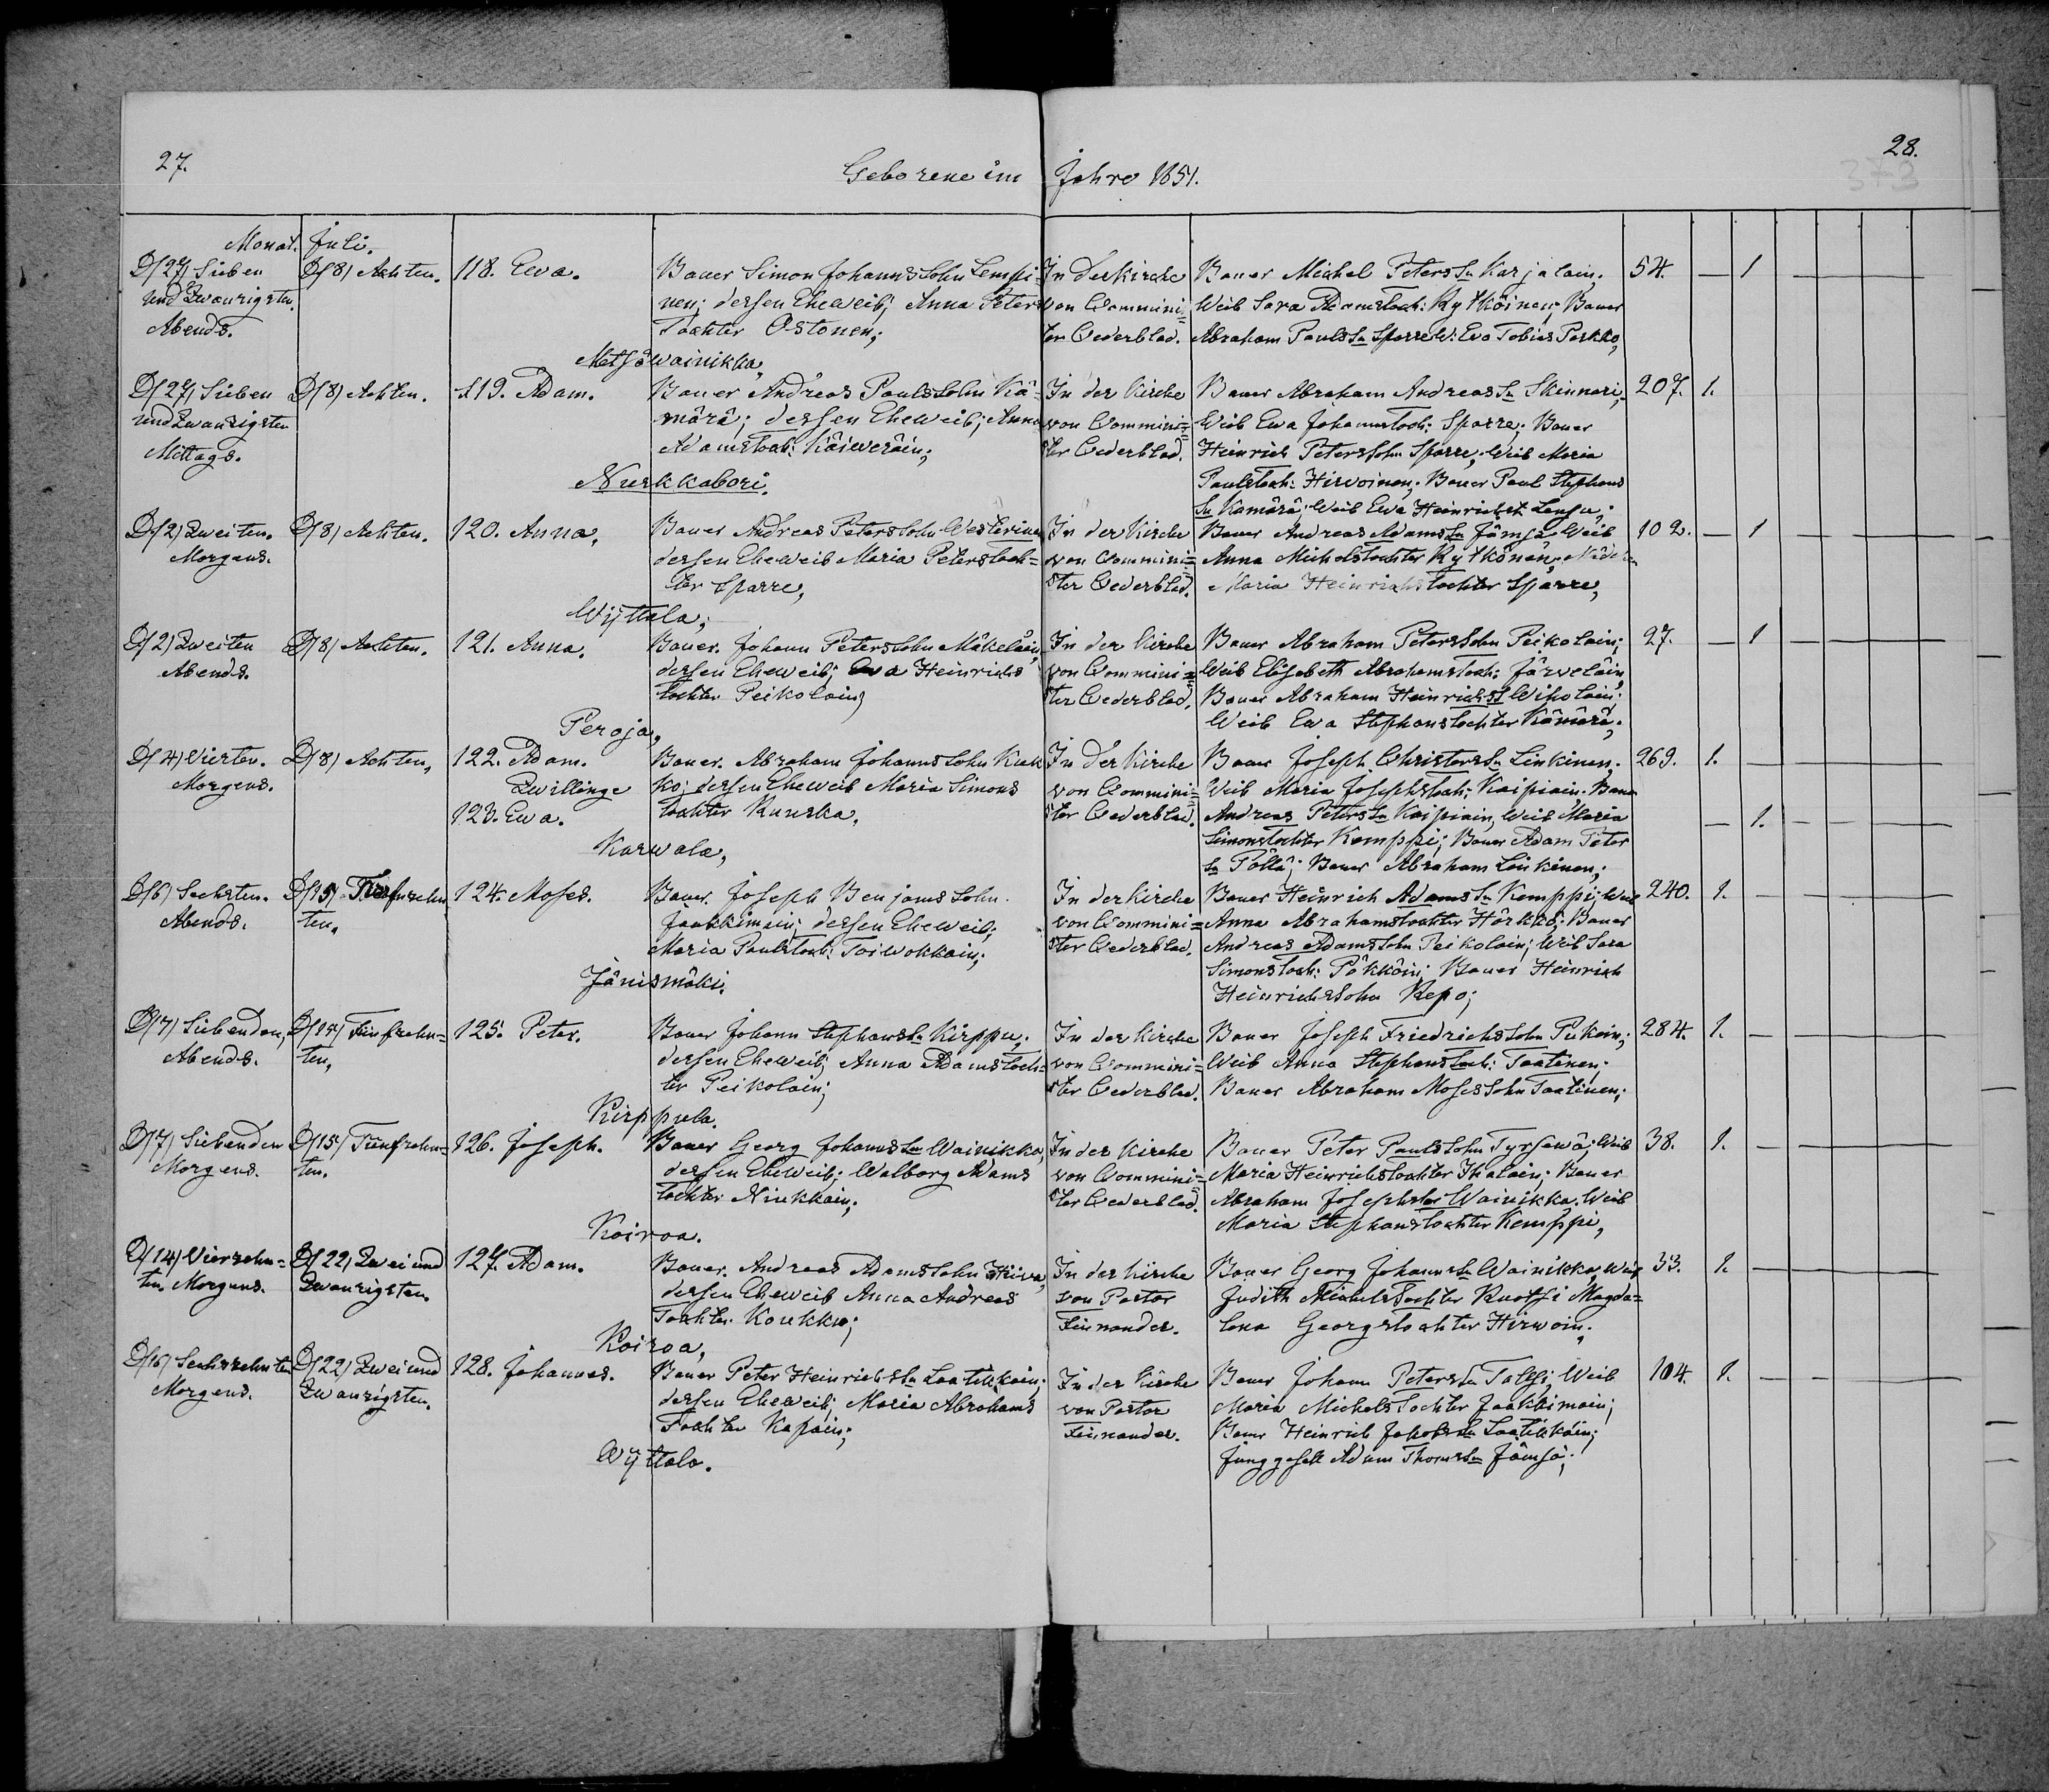 27.
28.
373
Geborene im Jahre 1851.
Monat. Juli.
D/27/ Sieben D/8/ Achten. 118. Ewa. Bauer Simon Johannssohn Lemppi- In der Kirche Bauer Michel Peters Sn Karjalain. 54. — 1 — — — —
und Zwanzigsten. nen; dessen Eheweib; Anna Peters von Commini= Weib Sara Adamstoch: Rytköinen; Bauer
Abends. Tochter Ostonen; ster Cederblad. Abraham Pauls Sn Sparre W: Eva Tobias Parkko,
Metsäwainikka,
D/27/ Sieben D/8/ Achten. 119. Adam. Bauer Andreas Paulssohn Kä- In der Kirche Bauer Abraham Andreas Sn Skinnari; 207. 1. — — — — —
und Zwanzigsten märä; dessen Eheweib; Anna von Commini= Weib Ewa Johannstoch: Sparre; Bauer
Mittags. Adamstoch: Käiweräin; ster Cederblad. Heinrich Peterssohn Sparre; Weib Maria
Nurkkabori. Paulstoch: Hirwoinen; Bauer Paul Stephans
Sn Kämärä; Weib Ewa Heinrichst Lensu;
D/2/ Zweiten. D/8/ Achten. 120. Anna, Bauer Andreas Peterssohn Westerinen In der Kirche Bauer Andreas Adams Sn Jämsä Weib 102. — 1 — — — —
Morgens. dessen Eheweib Maria Peterstoch= von Commini= Anna Michelstochter Rytkönen;
ter Sparre, ster Cederblad. Maria Heinrichstochter Sparre,
Wyttala;
D/2/ Zweiten D/8/ Achten. 121. Anna. Bauer. Johann Peterssohn Mäkeläin, In der Kirche Bauer Abraham Peterssohn Peikolain; 27. — 1 — — — —
Abends. dessen Eheweib; Ewa Heinrichs von Commini= Weib Elisabeth Abrahamstoch: Järveläin,
tochter Peikolain; ster Cederblad. Bauer Abraham Heinrichs S Wiholain;
Peroja, Weib Ewa Stephanstochter Kämärä;
D/4/ Vierten. D/8/ Achten, 122. Adam. Bauer. Abraham Johannssohn Kuk In der Kirche Bauer Joseph Christers Sn Linkinen. 269. 1. — — — — —
Morgens. Zwillinge ko; dessen Eheweib Maria Simons von Commini= Weib Maria Josephstoch: Kaipiain. Bauer
123. Ewa. tochter Kunska, ster Cederblad. Andreas Peters Sn Kaipiain, Weib Maria — 1. — — — —
Karwala, Simonstochter Kemppi; Bauer Adam Peter
Sn Pöllä; Bauer Abraham Linkinen;
D/6/ Sechsten. D/15/ Fünfzehn 124. Moses. Bauer. Joseph Benjamssohn In der Kirche Bauer Heinrich Adams Sn Kemppi; Weib 240. 1. — — — — —
Abends. ten. Jaakkimain; dessen Eheweib; von Commini= Anna Abrahamstochter Härkkö; Bauer
Maria Paulstoch: Toiwokkain; ster Cederblad. Andreas Adamssohn Peikolain; Weib Sara
Jänismäki. Simonstoch: Pökköin; Bauer Heinrich
Heinrichssohn Repo;
D/7/ Siebenden, D/15/ Fünfzehn= 125. Peter. Bauer Johann Stephans Sn Kirppu; In der Kirche Bauer Joseph Friedrichssohn Pukoin; 284. 1. — — — — —
Abends. ten, dessen Eheweib; Anna Adamstoch= von Commini= Weib Anna Stephanstoch: Taatinen;
ter Peikolain; ster Cederblad. Bauer Abraham Mosessohn Taatinen;
Kirppula.
D/7/ Siebenden D/15/ Fünfzehn= 126. Joseph. Bauer Georg Johanns Sn Wainikka, In der Kirche Bauer Peter Paulssohn Tyrsewä; Weib 38. 1. — — — — —
Morgens. ten. dessen Eheweib; Walborg Adams von Commini= Maria Heinrichstochter Ihalain; Bauer
tochter Niukkain; ster Cederblad. Abraham Josephs Sn Wainikka; Weib
Koiroa. Maria Stephanstochter Kemppi,
D/14/ Vierzehn= D/22/ Zwei und 127. Adam. Bauer. Andreas Adamssohn In der Kirche Bauer Georg Johanns Sn Wainikka, Weib 33. 1. — — — — —
ten. Morgens. Zwanzigsten. dessen Eheweib Anna Andreas von Pastor Judith Michelstochter Ruotsi Magda=
Tochter Koukku; Finnander. lena Georgstochter Hirwoin;
Koiroa,
D/16/ Sechszehnten D/22/ Zwei und 128. Johannes. Bauer Peter Heinrichs Sn Laatikkain; In der Kirche Bauer Johann Peters Sn Talsi; Weib 104. 1. — — — — —
Morgens. Zwanzigsten. dessen Eheweib; Maria Abrahams von Pastor Maria Michelstochter Jaakkimain;
Tochter Kapain; Finnander. Bauer Heinrich Jakobs Sn Laatikkain;
Wyttala. Junggesell Adam Thoms Sn Jämsä;